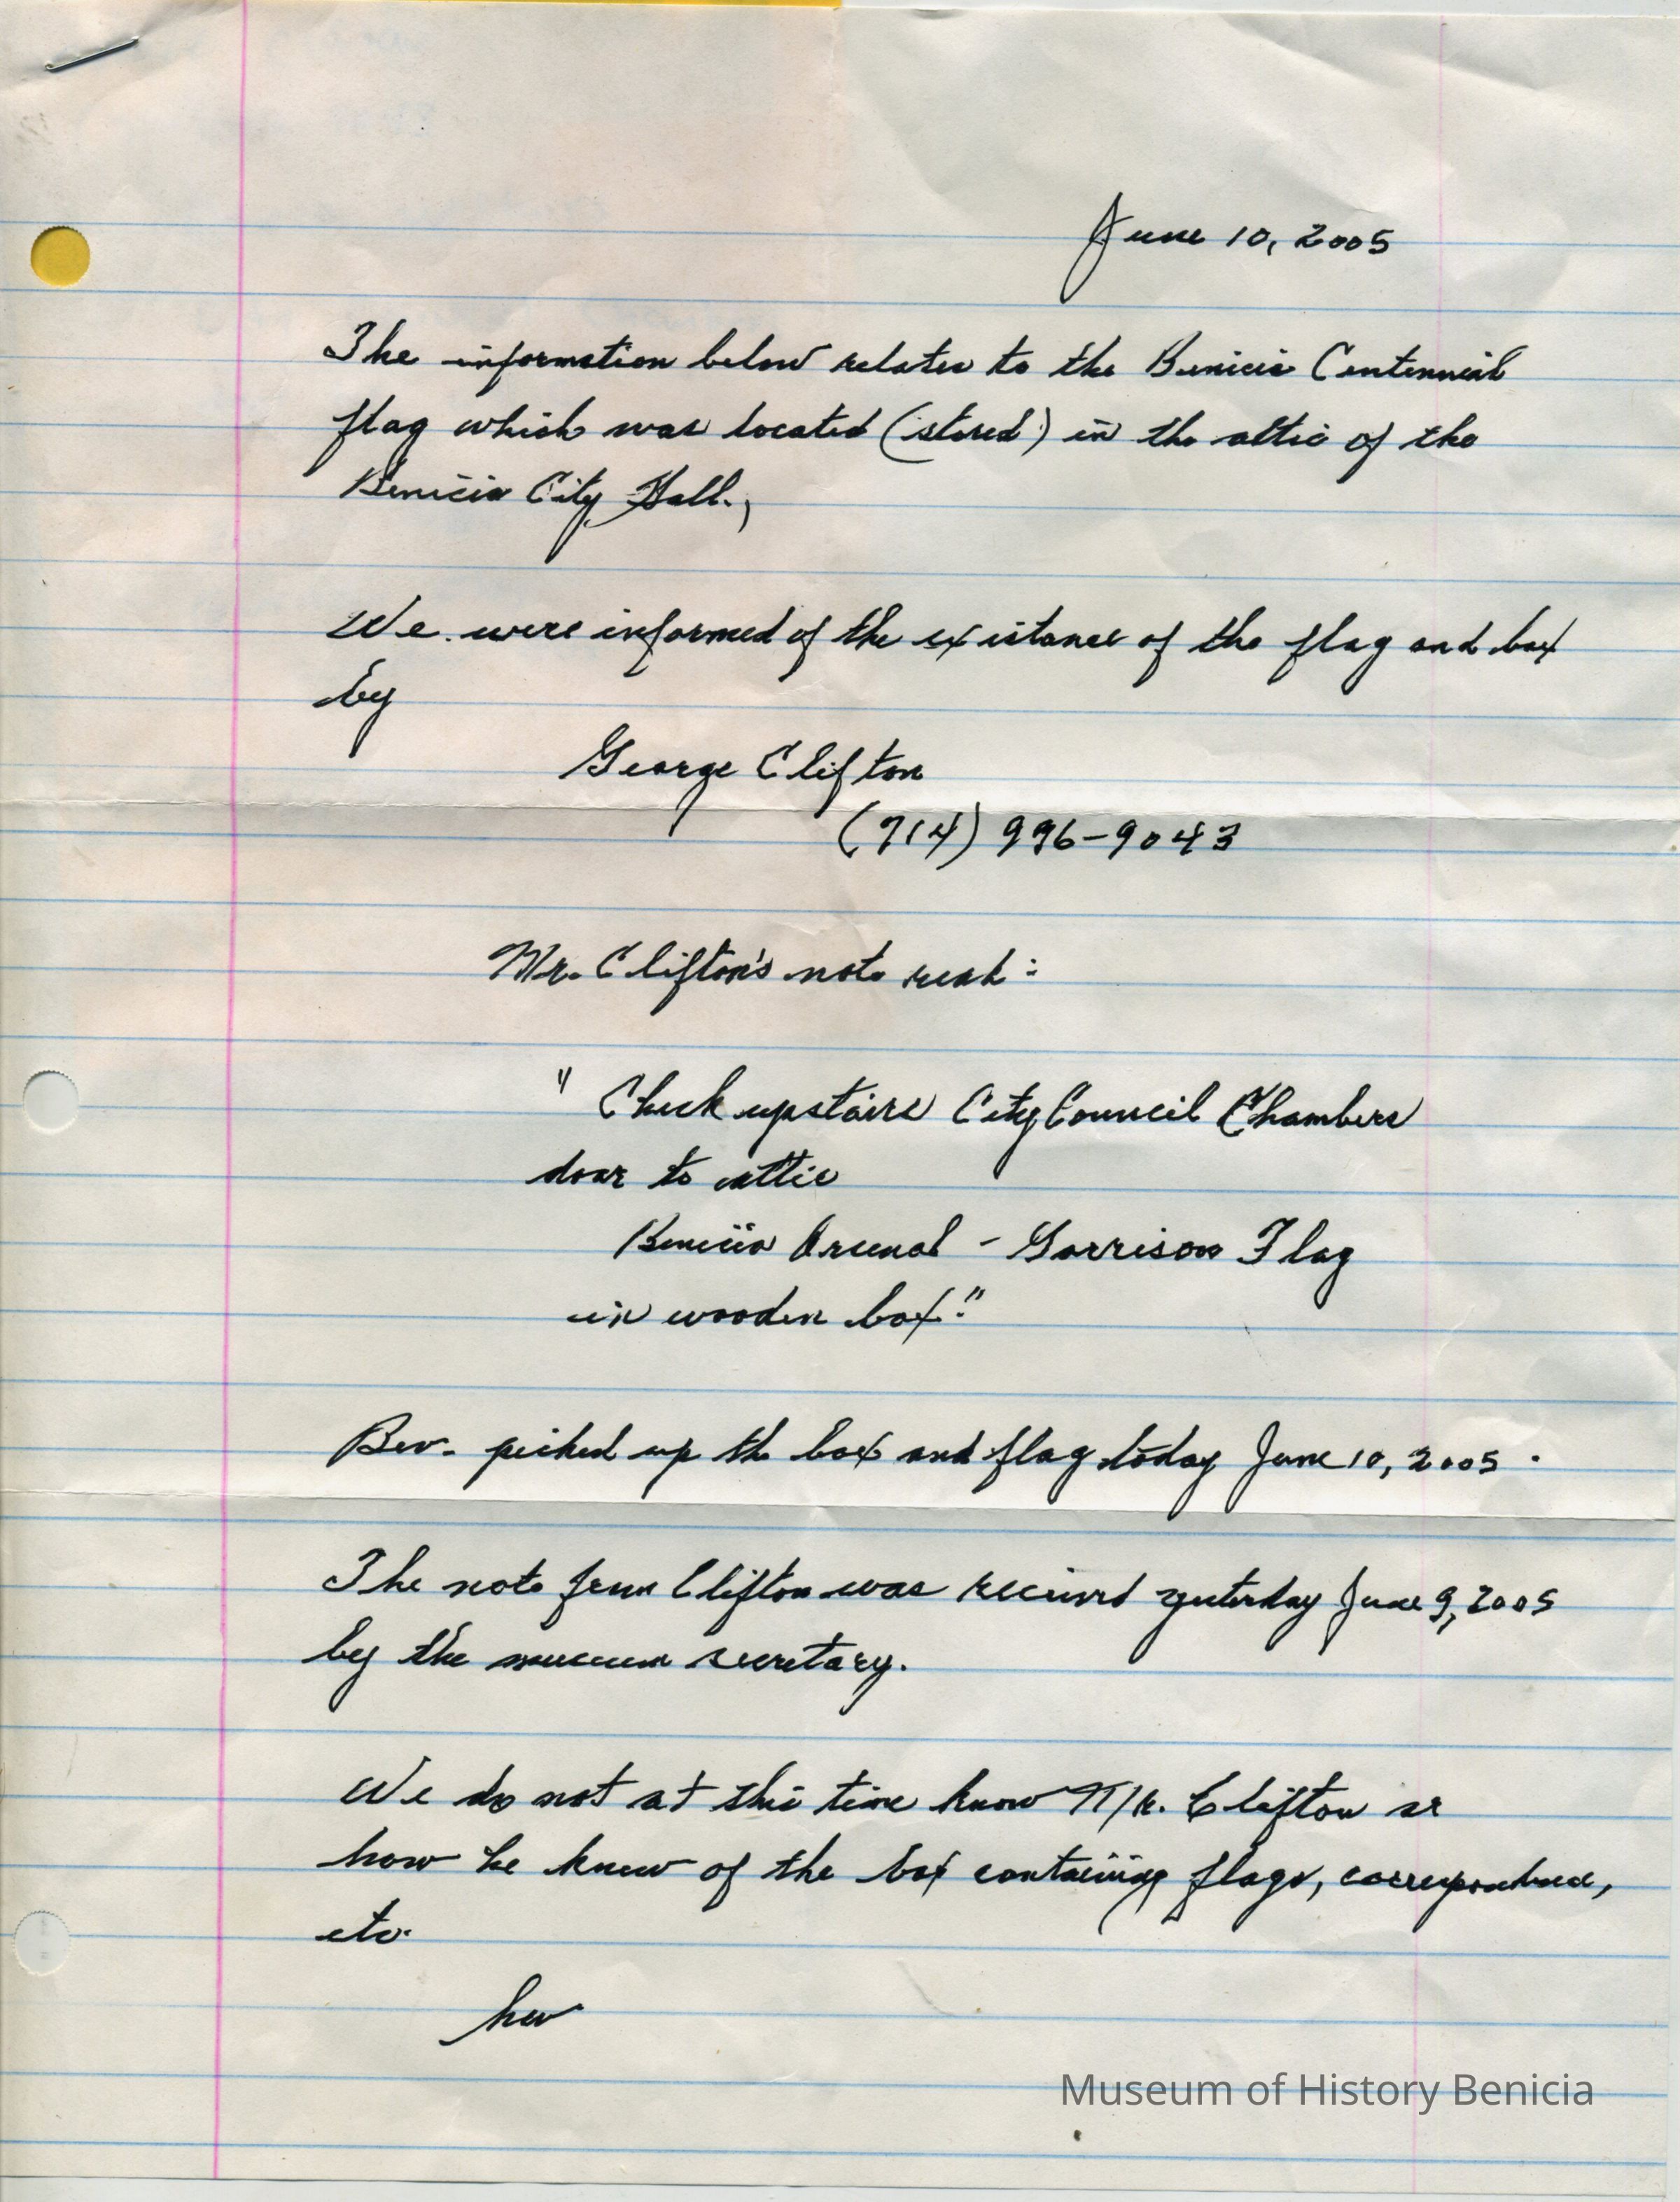 June 10, 2005
The information below relates to the Benicia Centennial
flag which was located (stored) in the attic of the
Benicia City Hall.,
We were informed of the existance of the flag and box
by
George Clifton
(714) 996-9043
Mr. Clifton's note read:
"Check upstairs City Council Chambers
door to attic
Benicia Arsenal - Garrison Flag
in wooden box."
Bev. picked up the box and flag today June 10, 2005.
The note from Clifton was received yesterday June 9, 2005
by the museum secretary.
We do not at this time know Mr. Clifton or
how he knew of the box containing flags, correspondence,
etc.
Museum of History Benicia